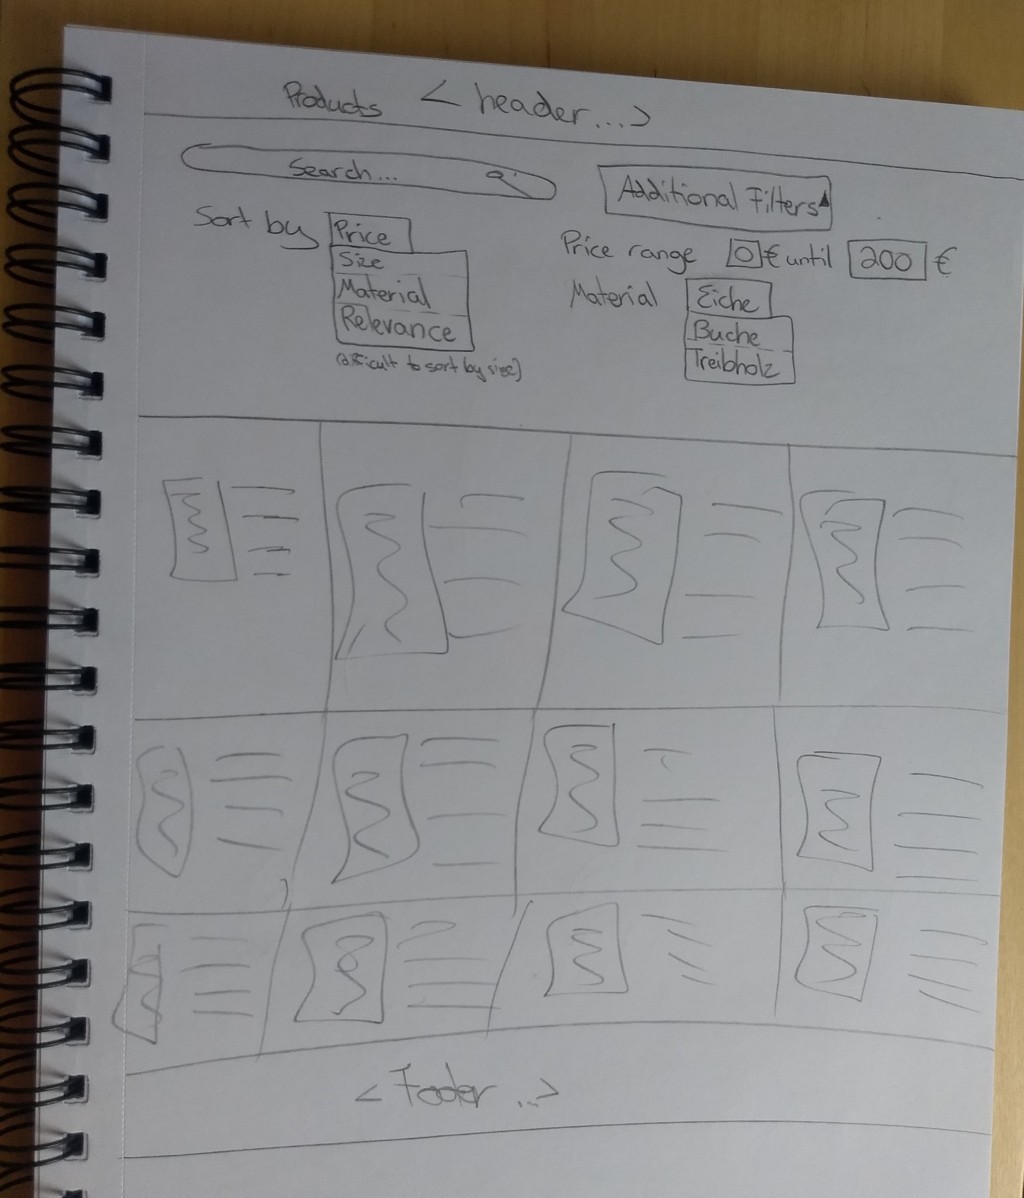 Products < header...>
Search...
Additional Filters
Sort by Price
Size
Material
Relevance
(difficult to sort by size)
Price range 0 € until 200 €
Material Eiche
Buche
Treibholz
< Footer ...>